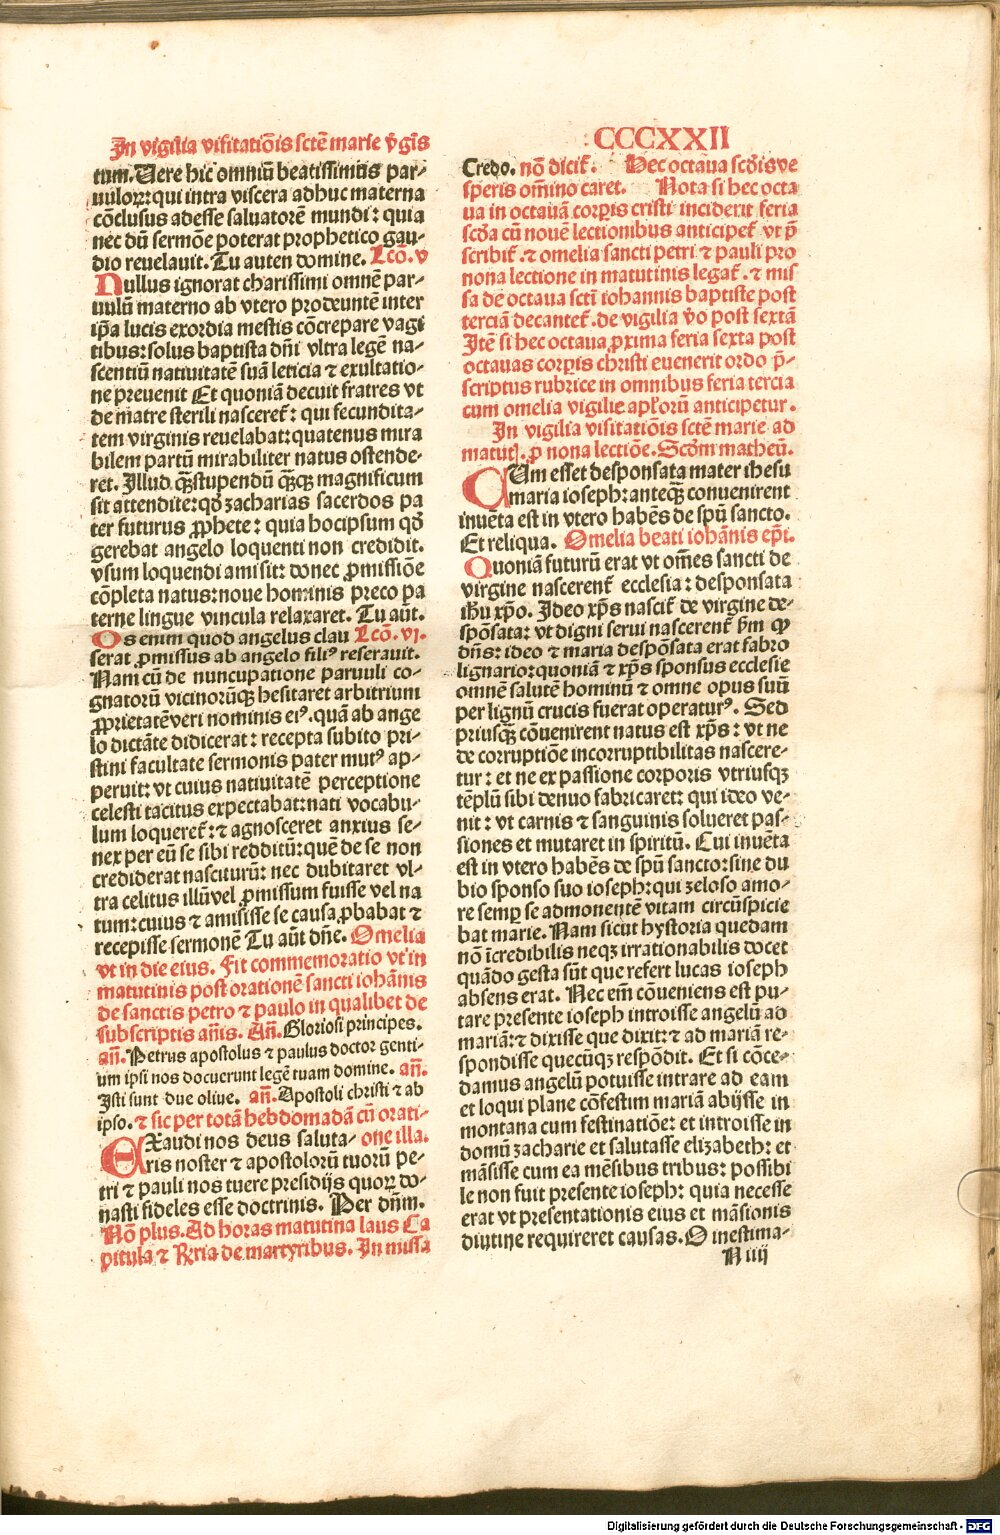 In vigilia visitatiōis sctē marie v̄gīs
CCCXXII
tum. Uere hic omniū beatissimus par-
uuloꝝ: qui intra viscera adhuc materna
cōclusus adesse saluatorē mundi: quia
nec dū sermōe poterat prophetico gau-
dio reuelauit. Tu autem domine. Lcō. v
Nullus ignorat charissimi omnē par-
uulū materno ab vtero prodeuntē inter
ip̄a lucis exordia mestis cōcrepare vagi
tibus: solus baptista dn̄i vltra legē na-
scentiū natiuitatē suā leticia ⁊ exultatio-
ne preuenit Et quoniā decuit fratres vt
de matre sterili nasceret̄: qui fecundita-
tem virginis reuelabat: quatenus mira
bilem partū mirabiliter natus ostende-
ret. Illud qͣꝫ stupendū qͣꝫqꝫ magnificum
sit attendite: qđ zacharias sacerdos pa
ter futurus ꝓphete: quia hocipsum qđ
gerebat angelo loquenti non credidit.
vsum loquendi amisit: donec ꝓmissiōe
cōpleta natus: noue hominis preco pa
terne lingue vincula relaxaret. Tu aūt.
Os enim quod angelus clau Lcō. vi.
serat ꝓmissus ab angelo filiꝰ reserauit.
Nam cū de nuncupatione paruuli co-
gnatorū vicinorūqꝫ hesitaret arbitrium
ꝓprietatē veri nominis eiꝰ. quā ab ange
lo dictāte didicerat: recepta subito pri-
stini facultate sermonis pater mutꝰ ap-
peruit: vt cuius natiuitatē perceptione
celesti tacitus expectabat: nati vocabu-
lum loqueret̄: ⁊ agnosceret anxius se-
nex per eū se sibi redditū: quē de se non
crediderat nasciturū: nec dubitaret vl-
tra celitus illū vel ꝓmissum fuisse vel na
tum: cuius ⁊ amisisse se causa ꝓbabat ⁊
recepisse sermonē Tu aūt dn̄e. Omelia
vt in die eius. Fit commemoratio vt in
matutinis post orationē sancti iohānis
de sanctis petro ⁊ paulo in qualibet de
subscriptis an̄is. An̄. Gloriosi principes.
an̄. Petrus apostolus ⁊ paulus doctor genti-
um ipsi nos docuerunt legē tuam domine. an̄.
Isti sunt due oliue. an̄. Apostoli christi ⁊ ab
ipso. ⁊ sic per totā hebdomadā cū orati-
EXaudi nos deus saluta- one illa.
ris noster ⁊ apostolorū tuorū pe-
tri ⁊ pauli nos tuere presidijs quoꝝ do-
nasti fideles esse doctrinis. Per dn̄m.
Nō plus. Ad horas matutina laus Ca
pitula ⁊ Rr̄ia de martyribus. In missa
Credo. nō dicit̄. Hec octaua scđis ve
speris om̄ino caret. Nota si hec octa
ua in octauā corꝑis cristi inciderit feria
scđa cū nouē lectionibus anticipet̄ vt p̄
scribit̄. ⁊ omelia sancti petri ⁊ pauli pro
nona lectione in matutinis legat̄. ⁊ mis
sa de octaua scti iohannis baptiste post
terciā decantet̄. de vigilia v̄o post sextā
Itē si hec octaua ꝓxima feria sexta post
octauas corꝑis christi euenerit ordo p̄-
scriptus rubrice in omnibus feria tercia
cum omelia vigilie apl̄orū anticipetur.
In vigilia visitatiōis sctē marie ad
matut̄. ꝓ nona lectiōe. Scđm matheū.
CUm esset desponsata mater ihesu
maria ioseph: anteqͣꝫ conuenirent
inuēta est in vtero habēs de spū sancto.
Et reliqua. Omelia beati iohānis ep̄i.
Quoniā futurū erat vt om̄es sancti de
virgine nascerent̄ ecclesia: desponsata
ih̄u xp̄o. Ideo xp̄s nascit̄ de virgine de-
spōsata: vt digni serui nascerent̄ v̄m ꝙ
dn̄s: ideo ⁊ maria despōsata erat fabro
lignario: quoniā ⁊ xp̄s sponsus ecclesie
omnē salutē hominū ⁊ omne opus suū
per lignū crucis fuerat operaturꝰ. Sed
priusqͣꝫ cōuenirent natus est xp̄s: vt ne
de corruptiōe incorruptibilitas nascere-
tur: et ne ex passione corporis vtriusqꝫ
tēplū sibi denuo fabricaret: qui ideo ve-
nit: vt carnis ⁊ sanguinis solueret pas-
siones et mutaret in spiritū. Cui inuēta
est in vtero habēs de spū sancto: sine du
bio sponso suo ioseph: qui zeloso amo-
re semꝑ se admonentē vitam circūspicie
bat marie. Nam sicut hystoria quedam
nō īcredibilis neqꝫ irrationabilis docet
quādo gesta sūt que refert lucas ioseph
absens erat. Nec em̄ cōueniens est pu-
tare presente ioseph introisse angelū ad
mariā: ⁊ dixisse que dixit: ⁊ ad mariā re-
spondisse quecūqꝫ respōdit. Et si cōce-
damus angelū potuisse intrare ad eam
et loqui plane cōfestim mariā abijsse in
montana cum festinatiōe: et introisse in
domū zacharie et salutasse elizabeth: et
māsisse cum ea mēsibus tribus: possibi
le non fuit presente ioseph: quia necesse
erat vt presentationis eius et māsionis
diutine requireret causas. O inestima-
N iiij
Digitalisierung gefördert durch die Deutsche Forschungsgemeinschaft - DFG